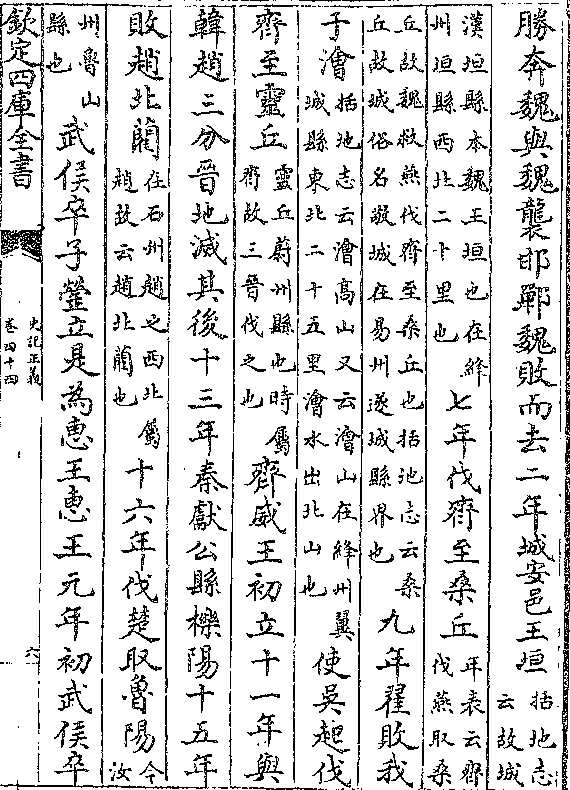 勝奔魏與魏襲邯鄲魏敗而去二年城安邑王垣括地志云故城
漢垣縣本魏王垣也在絳州垣縣西北二十里也七年伐齊至桑丘年表云齊伐燕取桑
丘故魏救燕伐齊至桑丘也括地志云桑丘故城俗名敬城在易州遂城縣界也九年翟敗我
于澮括地志云澮高山又云澮山在絳州翼城縣東北二十五里澮水出北山也使吳起伐
齊至靈丘靈丘蔚州縣也時屬齊故三晉伐之也齊威王初立十一年與
韓趙三分晉地滅其後十三年秦獻公縣櫟陽十五年
敗趙北藺在石州趙之西北屬趙故云趙北藺也十六年伐楚取魯陽今汝
州魯山縣也武侯卒子罃立是為惠王惠王元年初武侯卒
欽定四庫全書
史記正義
卷四十四
六